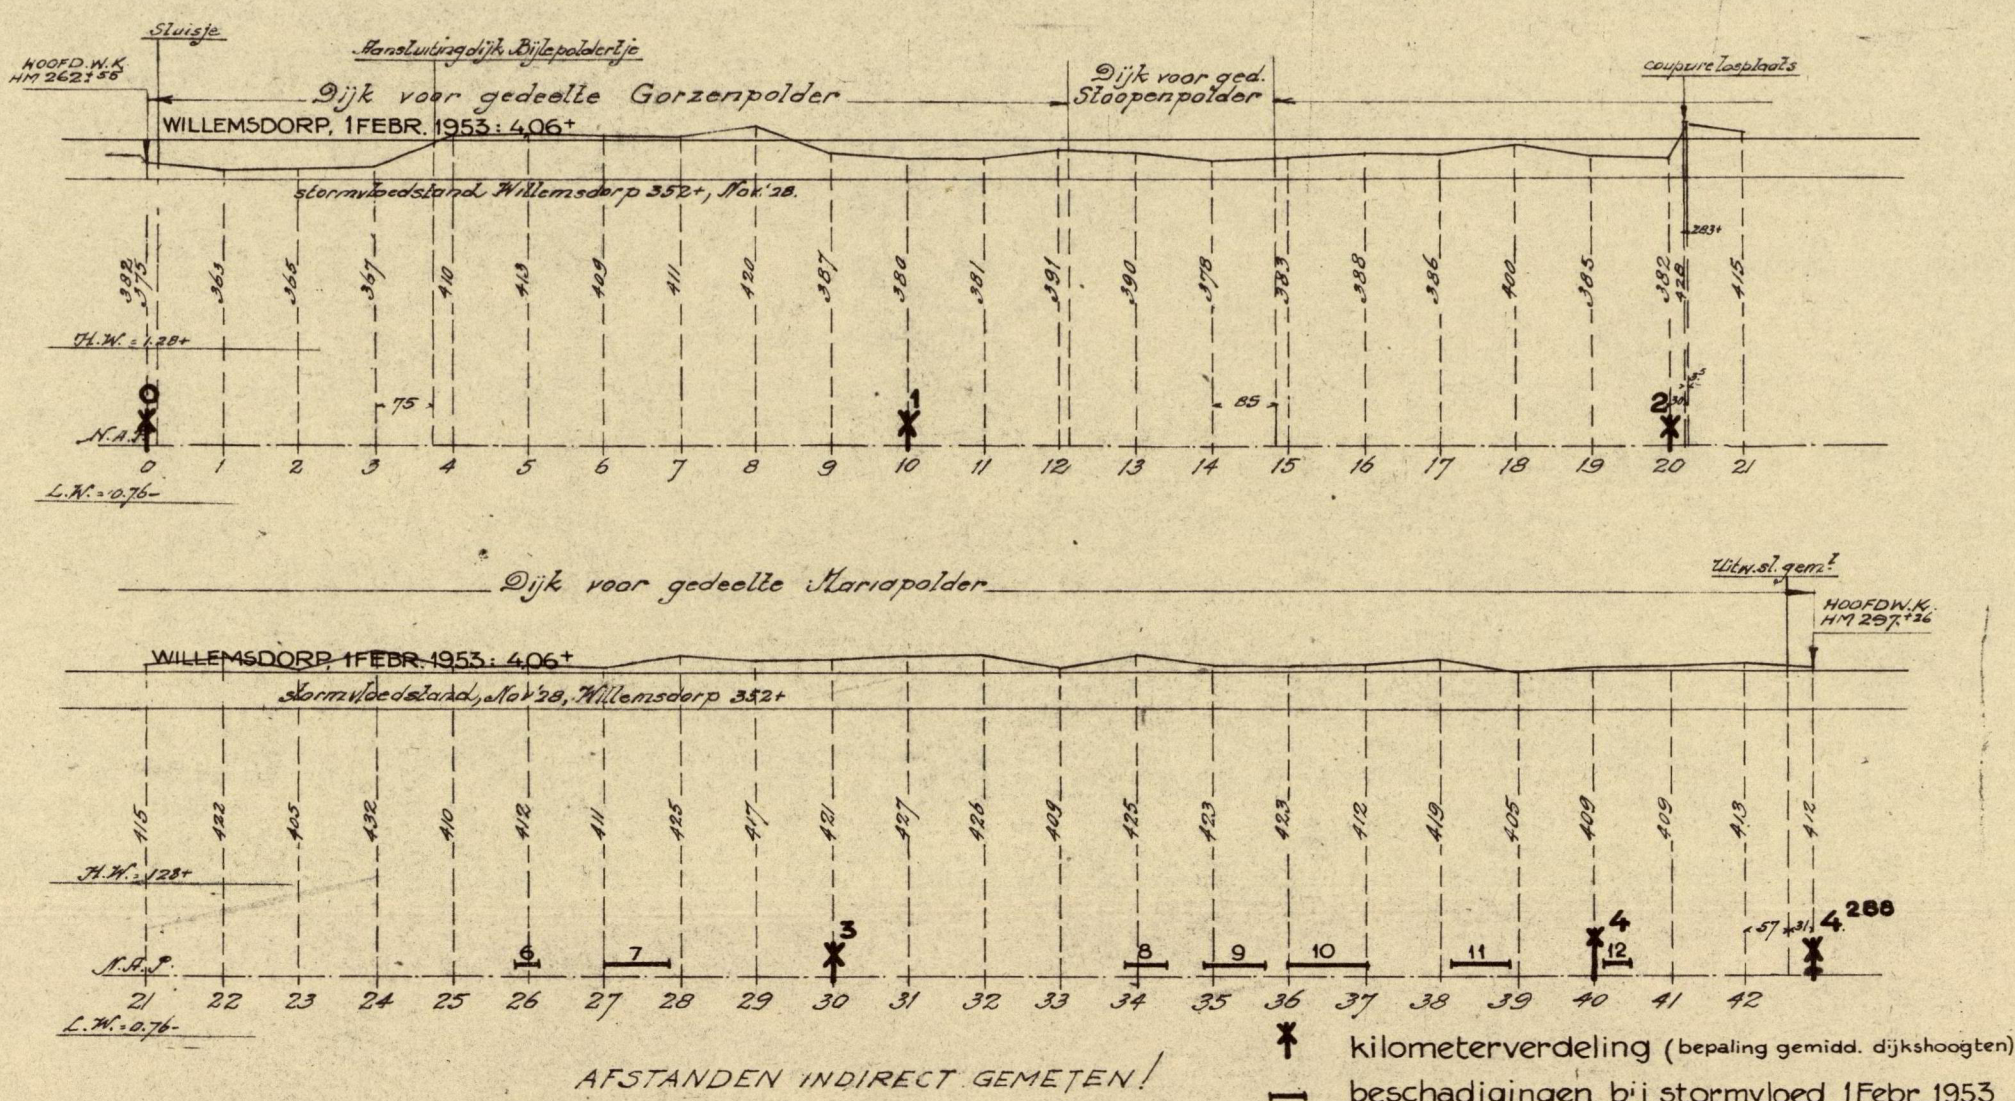 Sluisje
HOOFD.W.K.
HM 262+55
Aansluitingdijk Bijlepoldertje
Dijk voor gedeelte Gorzenpolder
Dijk voor ged.
Stoopenpolder
coupure losplaats
WILLEMSDORP, 1 FEBR. 1953: 4,06+
stormvloedstand Willemsdorp 352+, Nov.'28.
283+
382 375 363 365 367 410 413 409 411 420 387 380 381 391 390 378 383 388 386 400 385 382 428 415
H.W. = 1.28+
75 85 30
0 1 2
N.A.P.
0 1 2 3 4 5 6 7 8 9 10 11 12 13 14 15 16 17 18 19 20 21
L.W. = 0.76-
Dijk voor gedeelte Mariapolder
Uitw.sl.gem.t
HOOFDW.K.
HM 297.+26
WILLEMSDORP, 1 FEBR. 1953: 4,06+
stormvloedstand, Nov'28, Willemsdorp 352+
415 422 405 432 410 412 411 425 417 421 427 426 409 425 423 423 412 419 405 409 409 413 412
H.W. = 128+
3 4 57 31 4.288
6 7 8 9 10 11 12
N.A.P.
21 22 23 24 25 26 27 28 29 30 31 32 33 34 35 36 37 38 39 40 41 42
L.W. = 0.76-
kilometerverdeling (bepaling gemidd. dijkshoogten)
AFSTANDEN INDIRECT GEMETEN!
beschadigingen bij stormvloed 1 Febr 1953